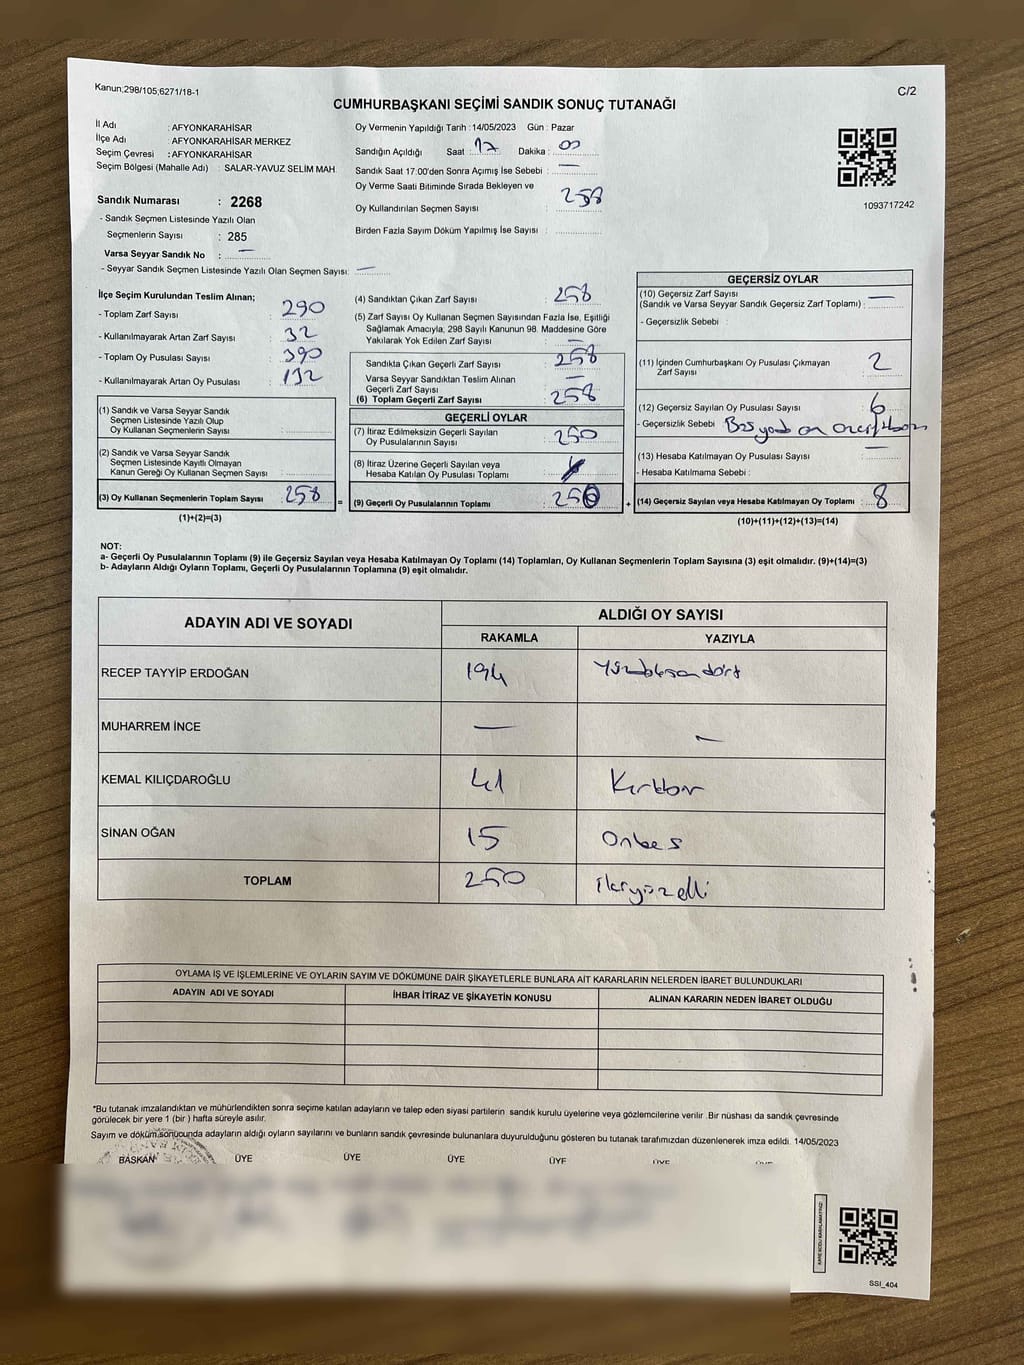 Kanun;298/105;6271/18-1
C/2
CUMHURBAŞKANI SEÇİMİ SANDIK SONUÇ TUTANAĞI
İl Adı : AFYONKARAHİSAR
İlçe Adı : AFYONKARAHİSAR MERKEZ
Seçim Çevresi : AFYONKARAHİSAR
Seçim Bölgesi (Mahalle Adı) : SALAR-YAVUZ SELİM MAH.
Sandık Numarası : 2268
- Sandık Seçmen Listesinde Yazılı Olan
Seçmenlerin Sayısı : 285
Varsa Seyyar Sandık No : —
- Seyyar Sandık Seçmen Listesinde Yazılı Olan Seçmen Sayısı: —
Oy Vermenin Yapıldığı Tarih : 14/05/2023 Gün : Pazar
Sandığın Açıldığı Saat : 17 Dakika : 00
Sandık Saat 17:00'den Sonra Açımış İse Sebebi : —
Oy Verme Saati Bitiminde Sırada Bekleyen ve
Oy Kullandırılan Seçmen Sayısı : 258
Birden Fazla Sayım Döküm Yapılmış İse Sayısı :
1093717242
İlçe Seçim Kurulundan Teslim Alınan;
- Toplam Zarf Sayısı : 290
- Kullanılmayarak Artan Zarf Sayısı : 32
- Toplam Oy Pusulası Sayısı : 390
- Kullanılmayarak Artan Oy Pusulası : 132
(1) Sandık ve Varsa Seyyar Sandık
Seçmen Listesinde Yazılı Olup
Oy Kullanan Seçmenlerin Sayısı :
(2) Sandık ve Varsa Seyyar Sandık
Seçmen Listesinde Kayıtlı Olmayan
Kanun Gereği Oy Kullanan Seçmen Sayısı :
(3) Oy Kullanan Seçmenlerin Toplam Sayısı : 258 =
(1)+(2)=(3)
(4) Sandıktan Çıkan Zarf Sayısı : 258
(5) Zarf Sayısı Oy Kullanan Seçmen Sayısından Fazla İse, Eşitliği
Sağlamak Amacıyla, 298 Sayılı Kanunun 98. Maddesine Göre
Yakılarak Yok Edilen Zarf Sayısı : —
Sandıkta Çıkan Geçerli Zarf Sayısı : 258
Varsa Seyyar Sandıktan Teslim Alınan
Geçerli Zarf Sayısı : —
(6) Toplam Geçerli Zarf Sayısı : 258
GEÇERLİ OYLAR
(7) İtiraz Edilmeksizin Geçerli Sayılan
Oy Pusulalarının Sayısı : 250
(8) İtiraz Üzerine Geçerli Sayılan veya
Hesaba Katılan Oy Pusulası Toplamı :
(9) Geçerli Oy Pusulalarının Toplamı : 250 +
GEÇERSİZ OYLAR
(10) Geçersiz Zarf Sayısı
(Sandık ve Varsa Seyyar Sandık Geçersiz Zarf Toplamı) : —
- Geçersizlik Sebebi :
(11) İçinden Cumhurbaşkanı Oy Pusulası Çıkmayan
Zarf Sayısı : 2
(12) Geçersiz Sayılan Oy Pusulası Sayısı : 6
- Geçersizlik Sebebi :
(13) Hesaba Katılmayan Oy Pusulası Sayısı : —
- Hesaba Katılmama Sebebi :
(14) Geçersiz Sayılan veya Hesaba Katılmayan Oy Toplamı : 8
(10)+(11)+(12)+(13)=(14)
NOT:
a- Geçerli Oy Pusulalarının Toplamı (9) ile Geçersiz Sayılan veya Hesaba Katılmayan Oy Toplamı (14) Toplamları, Oy Kullanan Seçmenlerin Toplam Sayısına (3) eşit olmalıdır. (9)+(14)=(3)
b- Adayların Aldığı Oyların Toplamı, Geçerli Oy Pusulalarının Toplamına (9) eşit olmalıdır.
ADAYIN ADI VE SOYADI
ALDIĞI OY SAYISI
RAKAMLA YAZIYLA
RECEP TAYYİP ERDOĞAN 194 Yüzdoksandört
MUHARREM İNCE — —
KEMAL KILIÇDAROĞLU 41 Kırkbir
SİNAN OĞAN 15 Onbes
TOPLAM 250 ikiyüzelli
OYLAMA İŞ VE İŞLEMLERİNE VE OYLARIN SAYIM VE DÖKÜMÜNE DAİR ŞİKAYETLERLE BUNLARA AİT KARARLARIN NELERDEN İBARET BULUNDUKLARI
ADAYIN ADI VE SOYADI İHBAR İTİRAZ VE ŞİKAYETİN KONUSU ALINAN KARARIN NEDEN İBARET OLDUĞU
*Bu tutanak imzalandıktan ve mühürlendikten sonra seçime katılan adayların ve talep eden siyasi partilerin sandık kurulu üyelerine veya gözlemcilerine verilir .Bir nüshası da sandık çevresinde
görülecek bir yere 1 (bir ) hafta süreyle asılır.
Sayım ve döküm sonucunda adayların aldığı oyların sayılarını ve bunların sandık çevresinde bulunanlara duyurulduğunu gösteren bu tutanak tarafımızdan düzenlenerek imza edildi. 14/05/2023
BAŞKAN ÜYE ÜYE ÜYE ÜYE ÜYE ÜYE
SSI_404